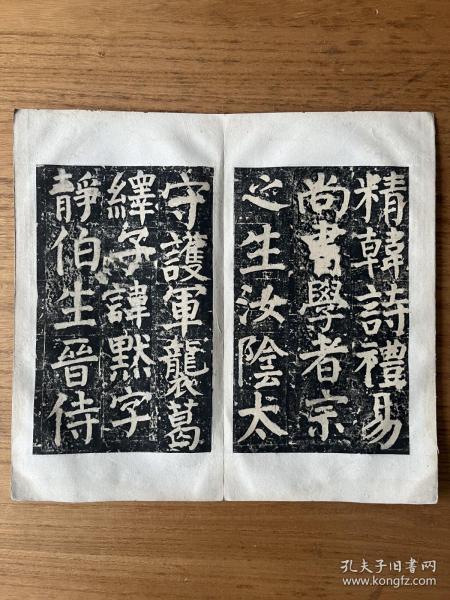 精韓詩禮易
尚書學者宗
之生汝陰太
守護軍襲葛
繹子諱默字
靜伯生晉侍
孔夫子旧书网
www.kongfz.com